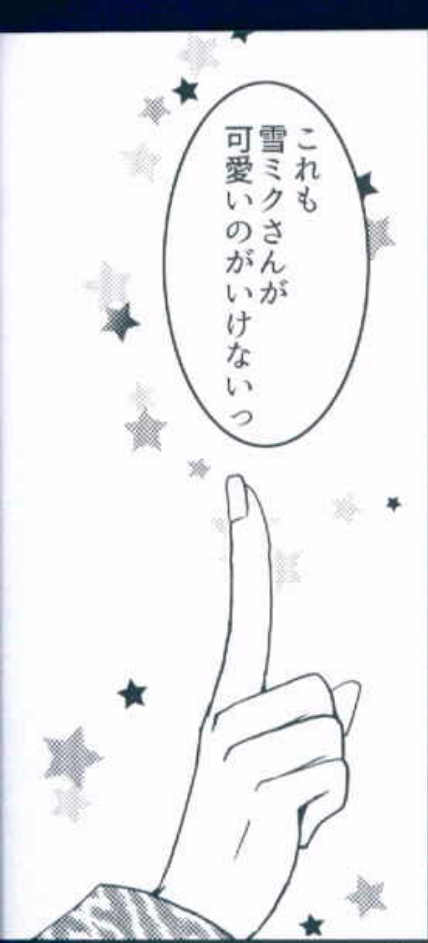 これも
雪ミクさんが
可愛いのがいけないっ